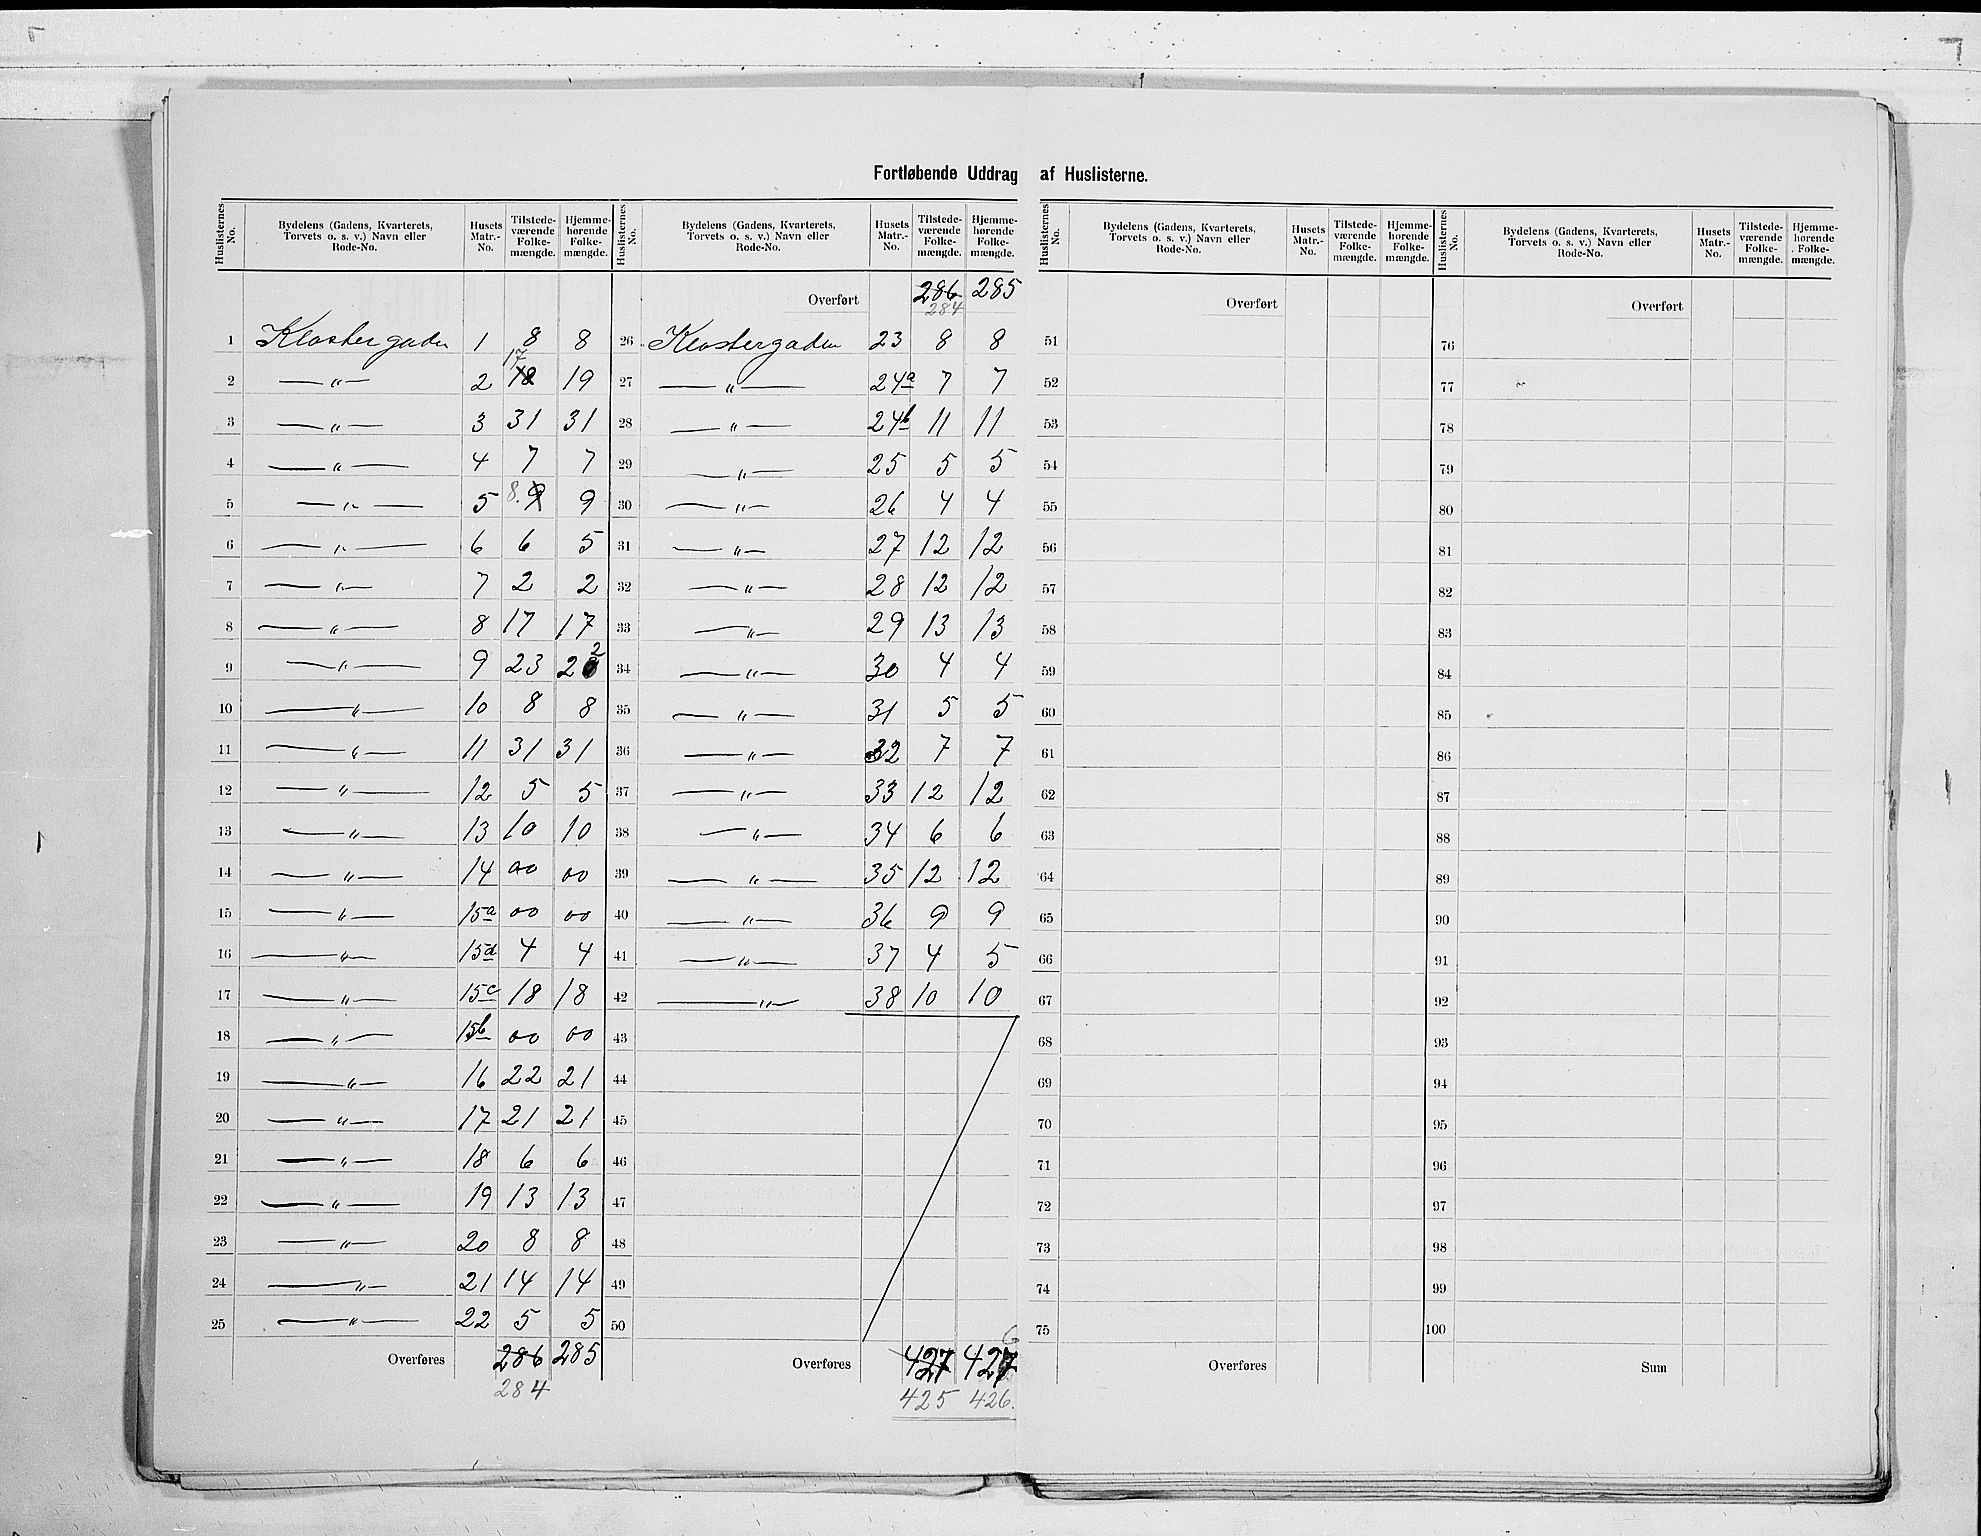 Fortløbende Uddrag af Huslisterne.
Huslisternes No. | Bydelens (Gadens, Kvarterets, Torvets o. s. v.) Navn eller Rode-No. | Husets Matr.-No. | Tilstede-værende Folke-mængde. | Hjemme-hørende Folke-mængde. | Huslisternes No. | Bydelens (Gadens, Kvarterets, Torvets o. s. v.) Navn eller Rode-No. | Husets Matr.-No. | Tilstede-værende Folke-mængde. | Hjemme-hørende Folke-mængde. | Huslisternes No. | Bydelens (Gadens, Kvarterets, Torvets o. s. v.) Navn eller Rode-No. | Husets Matr.-No. | Tilstede-værende Folke-mængde. | Hjemme-hørende Folke-mængde. | Huslisternes No. | Bydelens (Gadens, Kvarterets, Torvets o. s. v.) Navn eller Rode-No. | Husets Matr.-No. | Tilstede-værende Folke-mængde. | Hjemme-hørende Folke-mængde.
Overført 286 285 Overført Overført
284
1 Klostergaden 1 8 8 26 Klostergaden 23 8 8 51 76
17
2 — " — 2 18 19 27 — " — 24a 7 7 52 77
3 — " — 3 31 31 28 — " — 24b 11 11 53 78
4 — " — 4 7 7 29 — " — 25 5 5 54 79
5 — " — 5 8. 9 9 30 — " — 26 4 4 55 80
6 — " — 6 6 5 31 — " — 27 12 12 56 81
7 — " — 7 2 2 32 — " — 28 12 12 57 82
8 — " — 8 17 17 33 — " — 29 13 13 58 83
2
9 — " — 9 23 20 34 — " — 30 4 4 59 84
10 — " — 10 8 8 35 — " — 31 5 5 60 85
11 — " — 11 31 31 36 — " — 32 7 7 61 86
12 — " — 12 5 5 37 — " — 33 12 12 62 87
13 — " — 13 10 10 38 — " — 34 6 6 63 88
14 — " — 14 00 00 39 — " — 35 12 12 64 89
15 — " — 15a 00 00 40 — " — 36 9 9 65 90
16 — " — 15d 4 4 41 — " — 37 4 5 66 91
17 — " — 15c 18 18 42 — " — 38 10 10 67 92
18 — " — 15b 00 00 43 68 93
19 — " — 16 22 21 44 69 94
20 — " — 17 21 21 45 70 95
21 — " — 18 6 6 46 71 96
22 — " — 19 13 13 47 72 97
23 — " — 20 8 8 48 73 98
24 — " — 21 14 14 49 74 99
25 — " — 22 5 5 50 75 100
6
Overføres 286 285 Overføres 427 427 Overføres Sum
284 425 426.